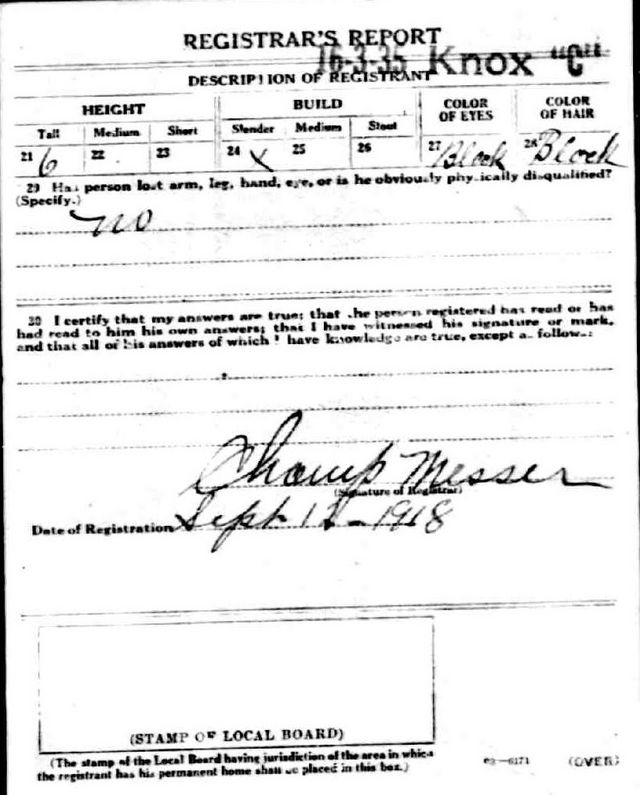 REGISTRAR'S REPORT
16-3-35 Knox "C"
DESCRIPTION OF REGISTRANT
HEIGHT BUILD COLOR OF EYES COLOR OF HAIR
Tall Medium Short Slender Medium Stout
21 6 22 23 24 X 25 26 27 Black 28 Black
29 Has person lost arm, leg, hand, eye, or is he obviously physically disqualified?
(Specify.)
no
30 I certify that my answers are true; that the person registered has read or has
had read to him his own answers; that I have witnessed his signature or mark,
and that all of his answers of which I have knowledge are true, except as follows:
Champ Messer
(Signature of Registrar)
Date of Registration Sept 12-1918
(STAMP OF LOCAL BOARD)
(The stamp of the Local Board having jurisdiction of the area in which
the registrant has his permanent home shall be placed in this box.)
03-6171 (OVER)